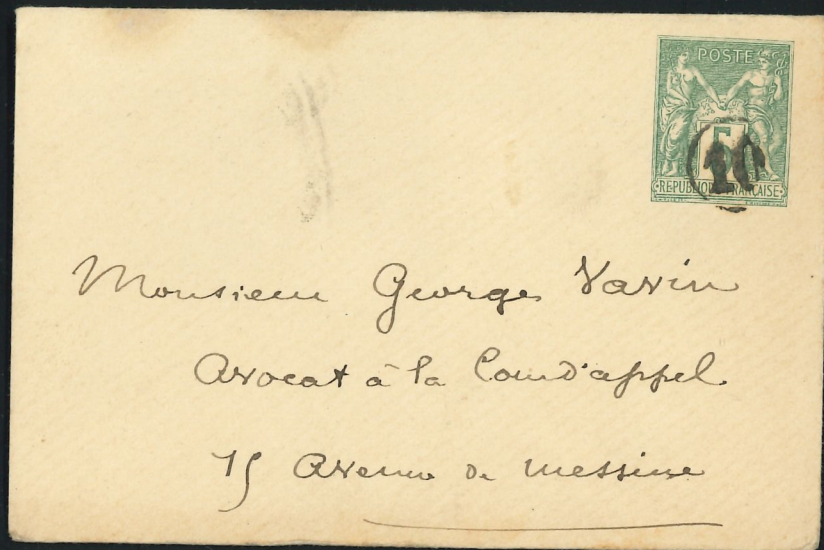 POSTE
5
10
REPUBLIQUE FRANÇAISE
Monsieur George Vavin
Avocat à la Cour d'appel
15 Avenue de Messine